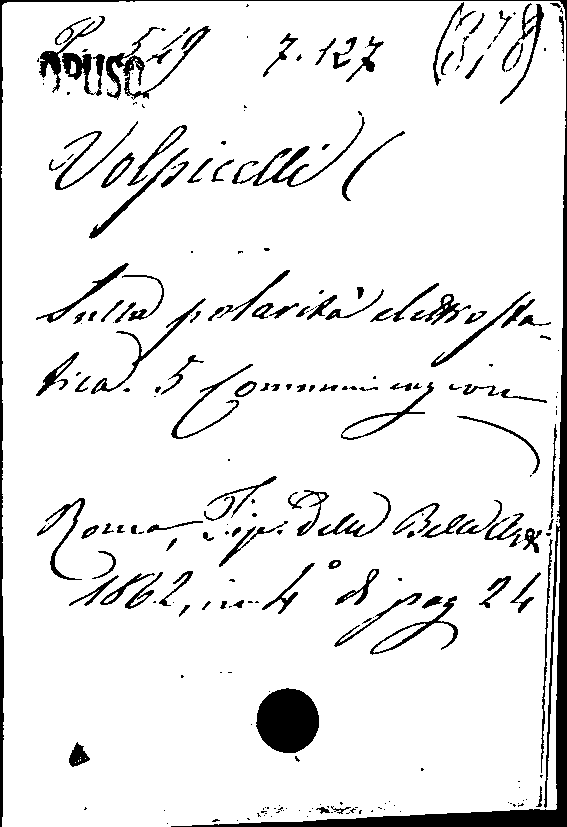 519 7.127 (378)
OPUSC
Volpicelli (
Sulla polarità elettrosta-
tica. 5 Communicazione
Roma, Tip. Delle Belle Arti
1862, in 4° di pag 24